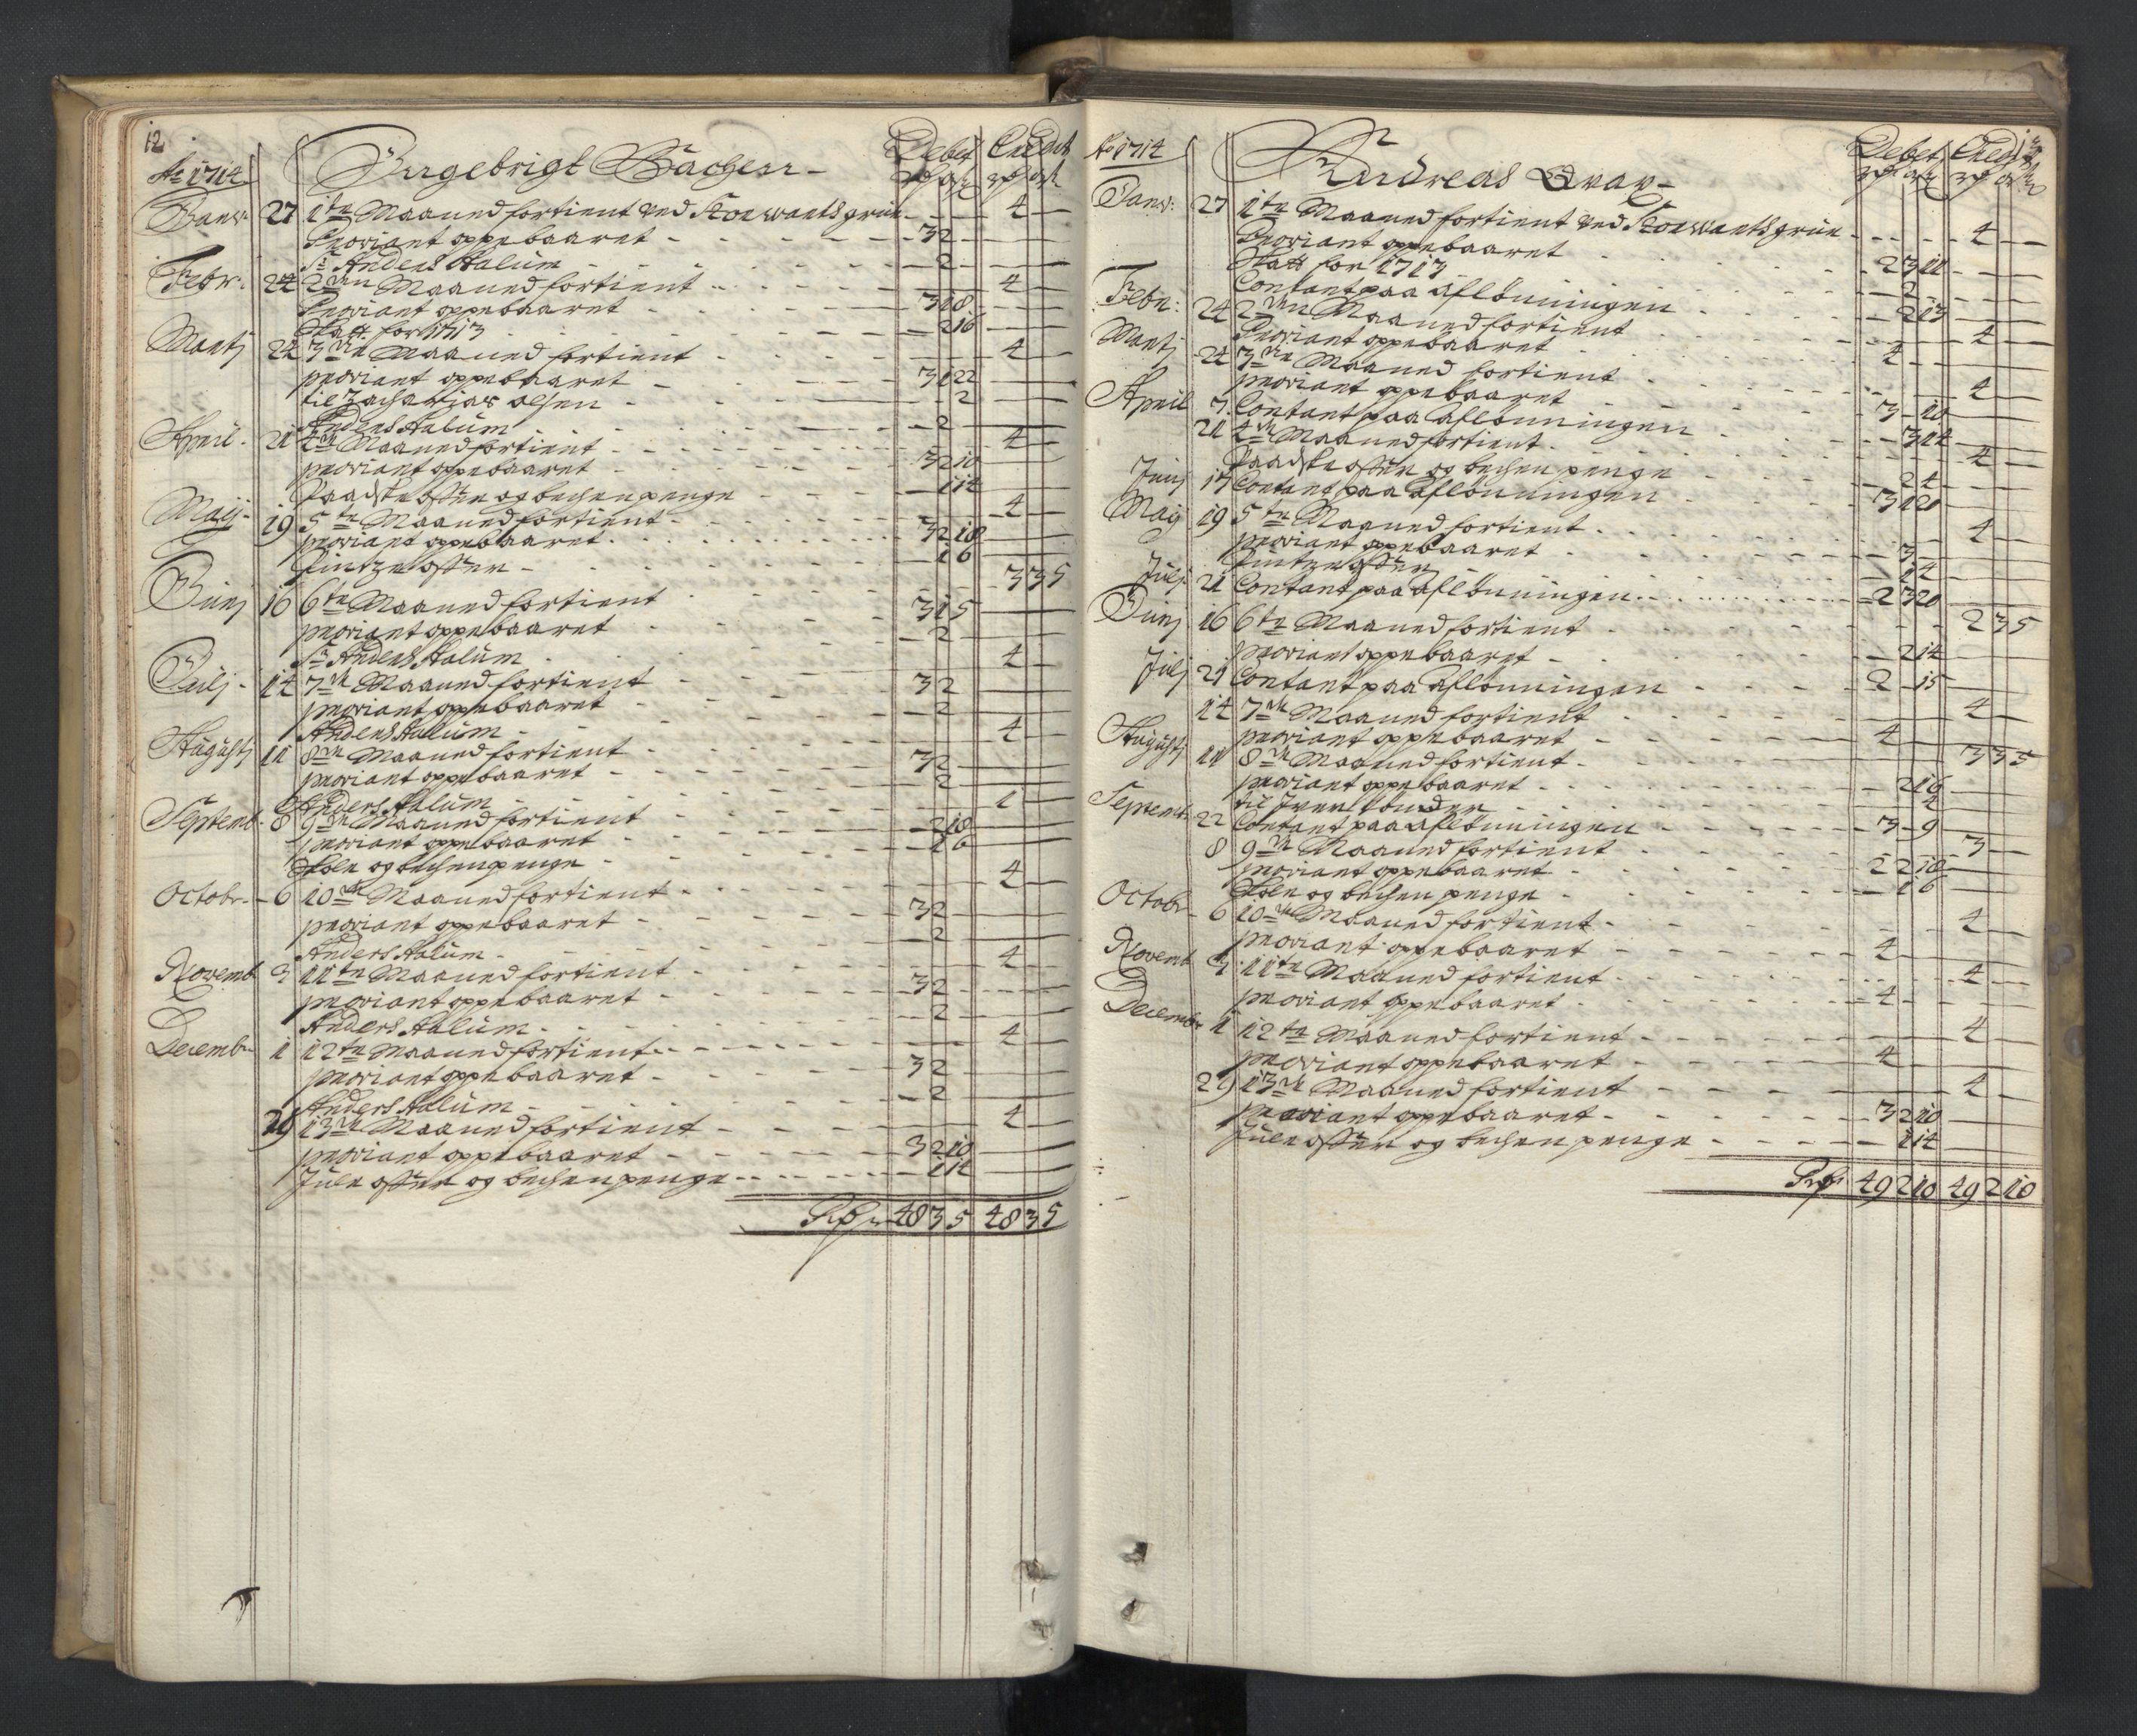 12
Ao 1714 Ingebrigt Bachen Debet Credit
Janv: 27 1te Maaned fortient ved Storwartsgrue 4
Proviant oppebaaret 3 2
Sr Anders Aalum 2
Febr: 24 2den Maaned fortient 4
Proviant oppebaaret 3 1 8
Skatt for 1713 2 16
Martj 24 3die Maaned fortient 4
proviant oppebaaret 3 1 22
til Zacharias Olsen 2
Anders Aalum 2
April 21 4de Maaned fortient 4
proviant oppebaaret 3 2 10
Paaske offer og bechenpenge 1 14
Maij 19 5te Maaned fortient 4
proviant oppebaaret 3 2 18
Pintze offer 1 6
Junj 16 6te Maaned fortient 3 3 5
proviant oppebaaret 3 1 5
Sr Anders Aalum 2
Julj 14 7de Maaned fortient 4
proviant oppebaaret 3 2
Anders Aalum 2
Augustj 11 8de Maaned fortient 4
proviant oppebaaret 3 2
Anders Aalum 2
Septemb: 8 9de Maaned fortient 1
proviant oppebaaret 2 18
Skole og bechenpenge 1 6
Octobr 6 10de Maaned fortient 4
proviant oppebaaret 3 2
Anders Aalum 2
Novemb 3 11te Maaned fortient 4
proviant oppebaaret 3 2
Anders Aalum 2
Decembr 1 12te Maaned fortient 4
proviant oppebaaret 3 2
Anders Aalum 2
29 13de Maaned fortient 4
proviant oppebaaret 3 2 10
Jule offer og bechenpenge 1 14
48 3 5 48 3 5
Ao 1714 Andreas Qvar Debet Credit
Janv: 27 1te Maaned fortient ved Storwartsgrue 4
Proviant oppebaaret 2 3 11
Skatt for 1713 2
Contant paa aflønningen 2 13
Febr: 24 2den Maaned fortient 4
Proviant oppebaaret 4
Martj 24 3die Maaned fortient 4
proviant oppebaaret 3 10
April 7 Contant paa aflønningen 3 14
21 4de Maaned fortient 4
Paadske offer og bechen penge 2 4
Junj 17 Contant paa aflønningen 3 1 20
Maij 19 5te Maaned fortient 4
proviant oppebaaret 3
Pintze offer 1 4
Julj 21 Contant paa aflønningen 2 3 20
Junj 16 6te Maaned fortient 2 3 5
proviant oppebaaret 2 14
Julj 21 Contant paa aflønningen 2 15
14 7de Maaned fortient 4
proviant oppebaaret 4
Augustj 11 8de Maaned fortient 3 3 5
proviant oppebaaret 2 16
til Iver 4
Septemb 22 Contant paa aflønningen 3 9
8 9de Maaned fortient 3
proviant oppebaaret 2 2 18
Skole og bechen penge 1 6
Octobr 6 10de Maaned fortient 4
proviant oppebaaret 4
Novemb 3 11te Maaned fortient 4
proviant oppebaaret 4
Decembr 1 12te Maaned fortient 4
proviant oppebaaret 4
29 13de Maaned fortient 4
proviant oppebaaret 3 2 10
Jule offer og bechenpenge 1 14
49 2 10 49 2 10